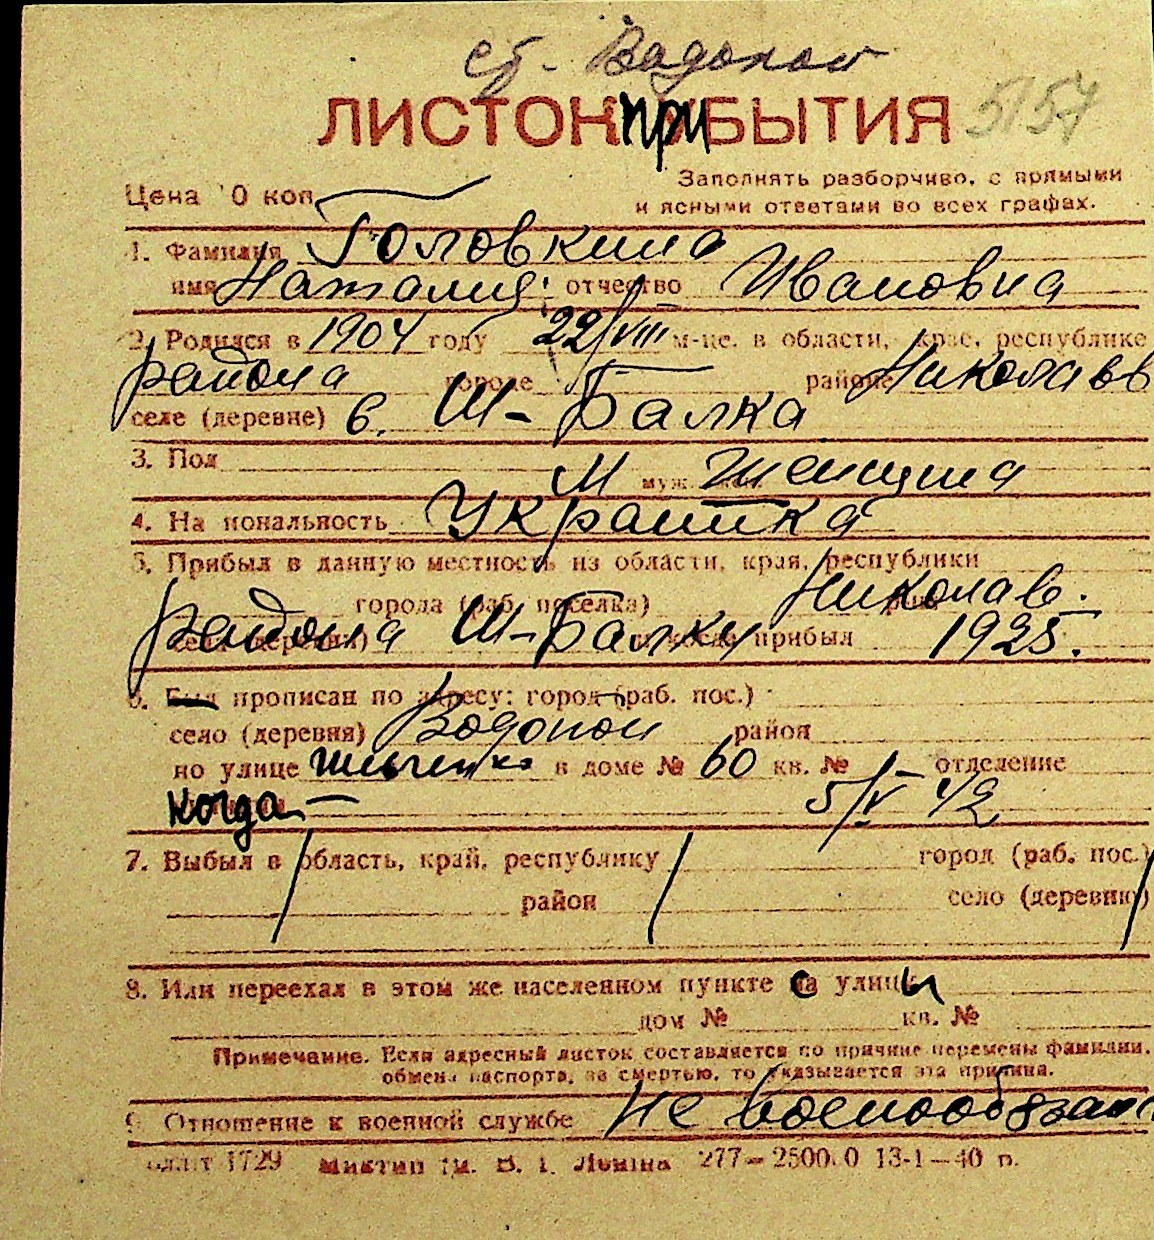 ст. Водопой
ЛИСТОК ПРИБЫТИЯ 5157
Цена 10 коп.
Заполнять разборчиво, с прямыми
и ясными ответами во всех графах.
1. Фамилия Головкина
имя Наталия отчество Ивановна
2. Родился в 1904 году 22/VIII м-це, в области, крае, республике
района городе — районе Николаев
селе (деревне) с. Ш-Балка
3. Пол муж. Женщина
4. Национальность Украинка
5. Прибыл в данную местность из области, края, республики
города (раб. поселка) Николаев.
района Ш-Балки прибыл 1925.
6. Был прописан по адресу: город (раб. пос.)
село (деревня) Водопой район
по улице в доме № 60 кв. № — отделение
когда — 5/V 42
7. Выбыл в область, край, республику город (раб. пос.)
район село (деревню)
8. Или переехал в этом же населенном пункте с улицы
дом № кв. №
Примечание. Если адресный листок составляется по причине перемены фамилии,
обмена паспорта, за смертью, то указывается эта причина.
9. Отношение к военной службе не военнообязан
1729 им. В. І. Леніна 277—2500.0 13-1—40 р.